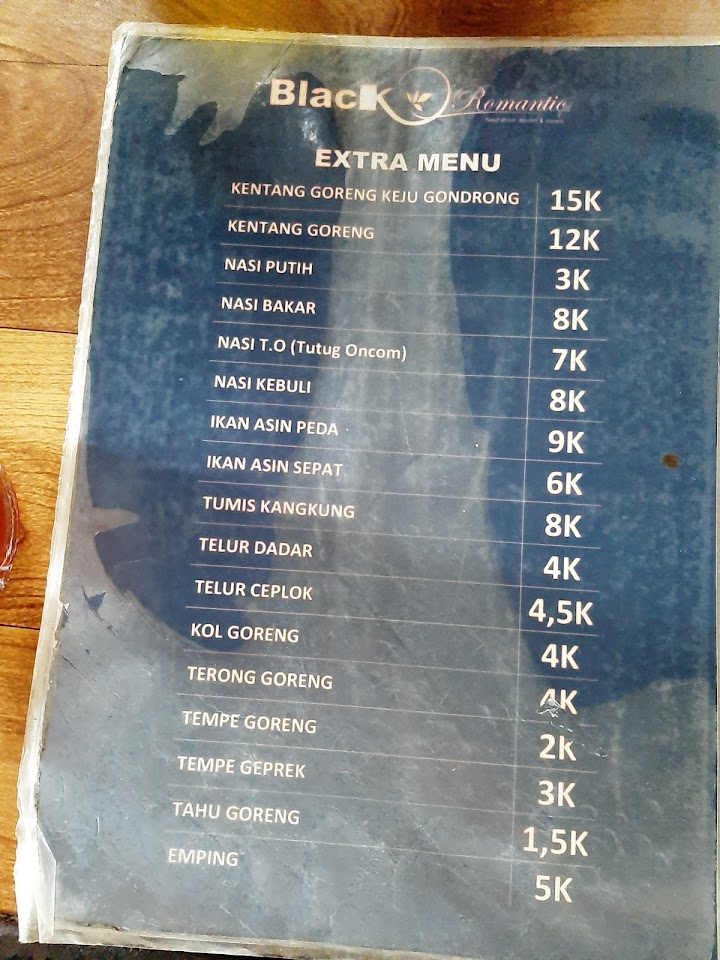 BlacK Romantic
EXTRA MENU
KENTANG GORENG KEJU GONDRONG 15K
KENTANG GORENG 12K
NASI PUTIH 3K
NASI BAKAR 8K
NASI T.O (Tutug Oncom) 7K
NASI KEBULI 8K
IKAN ASIN PEDA 9K
IKAN ASIN SEPAT 6K
TUMIS KANGKUNG 8K
TELUR DADAR 4K
TELUR CEPLOK 4,5K
KOL GORENG 4K
TERONG GORENG 4K
TEMPE GORENG 2K
TEMPE GEPREK 3K
TAHU GORENG 1,5K
EMPING 5K